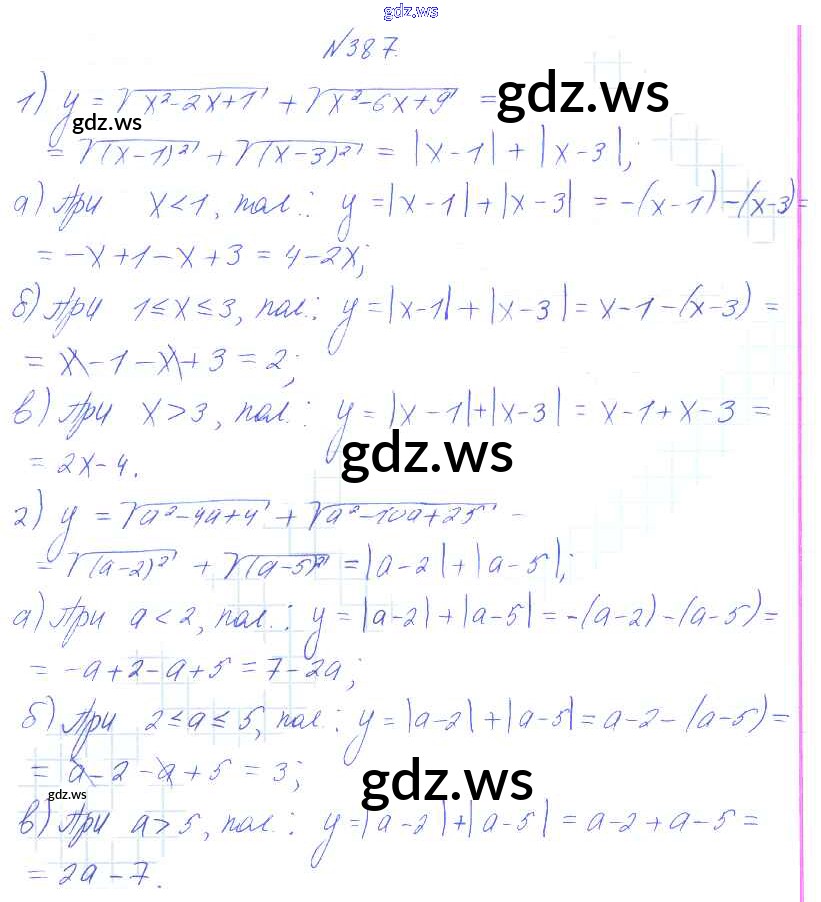 gdz.ws
N387.
1) y = √(x²-2x+1) + √(x²-6x+9) =
gdz.ws
gdz.ws
= √((x-1)²) + √((x-3)²) = |x-1| + |x-3|;
а) При x<1, пол.: y = |x-1| + |x-3| = -(x-1) - (x-3) =
= -x+1-x+3 = 4-2x;
б) При 1≤x≤3, пол.: y = |x-1| + |x-3| = x-1-(x-3) =
= x-1-x+3 = 2;
в) При x>3, пол.: y = |x-1|+|x-3| = x-1+x-3 =
= 2x-4.
gdz.ws
2) y = √(a²-4a+4) + √(a²-10a+25) -
= √((a-2)²) + √((a-5)²) = |a-2| + |a-5|;
а) При a<2, пол.: y = |a-2| + |a-5| = -(a-2) - (a-5) =
= -a+2-a+5 = 7-2a;
б) При 2≤a≤5, пол.: y = |a-2| + |a-5| = a-2-(a-5) =
= a-2-a+5 = 3;
gdz.ws
gdz.ws
в) При a>5, пол.: y = |a-2| + |a-5| = a-2+a-5 =
= 2a-7.